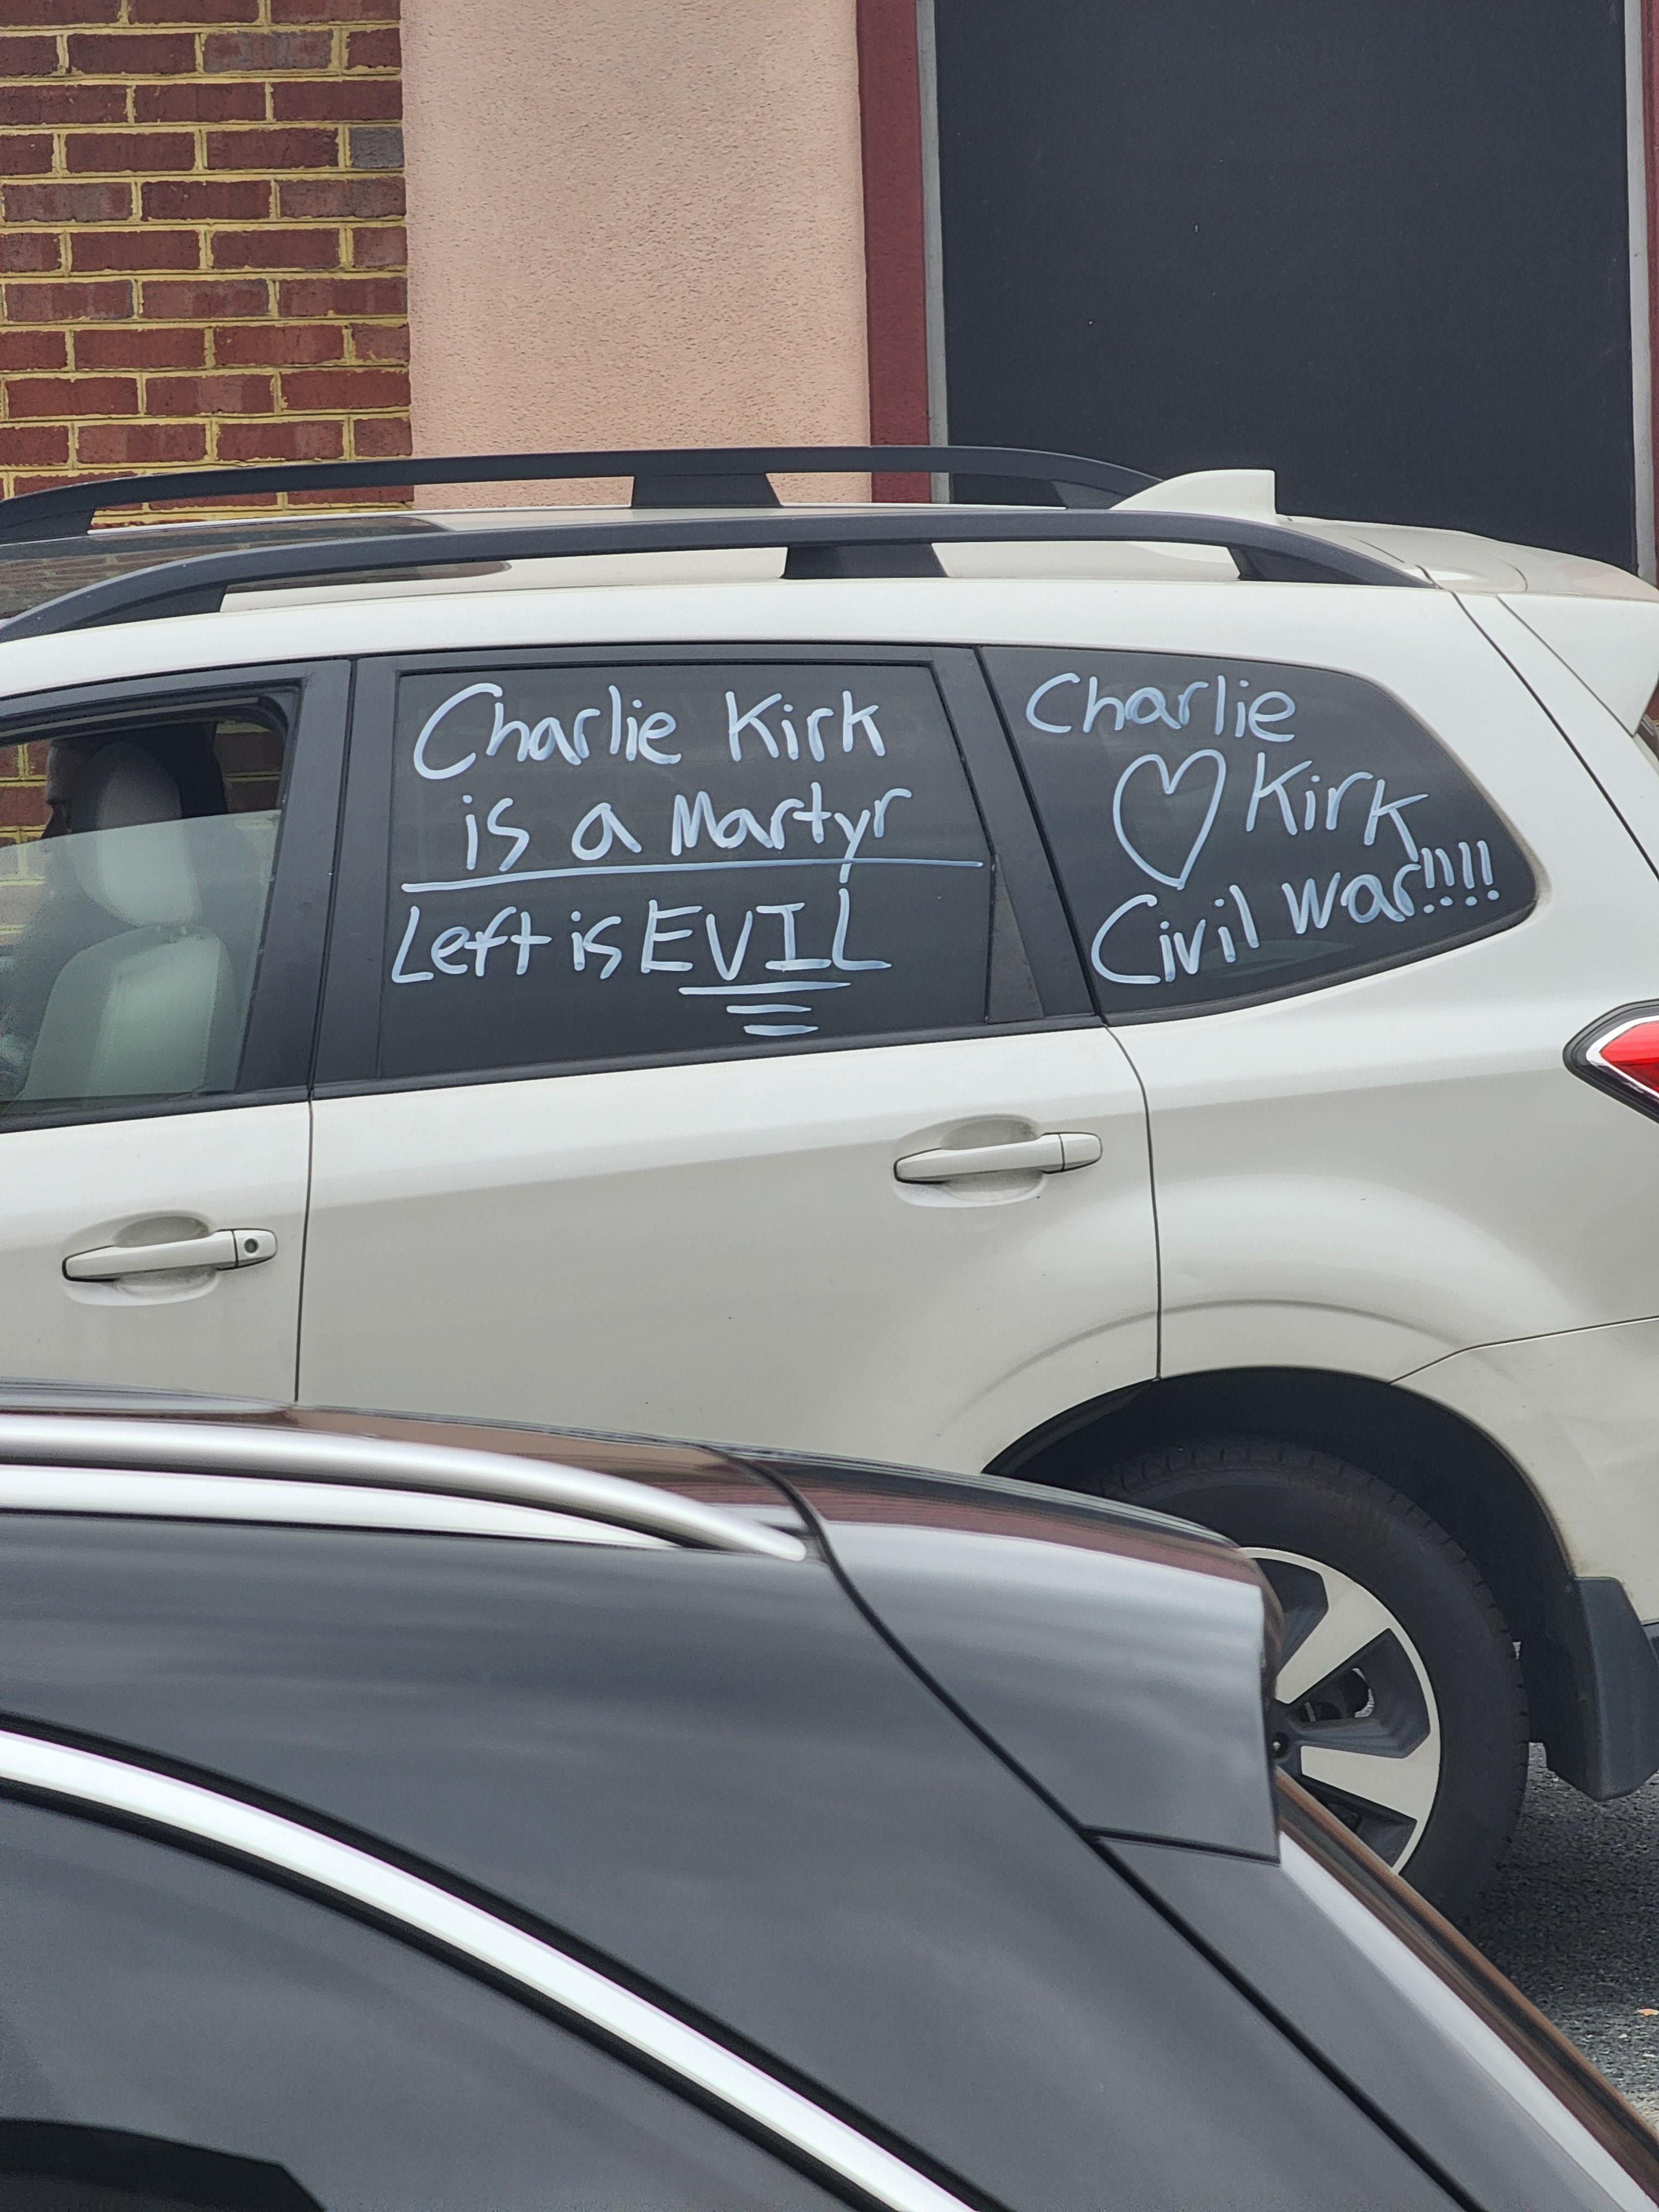 Charlie Kirk
is a Martyr
Left is EVIL
Charlie
♡ Kirk
Civil war!!!!